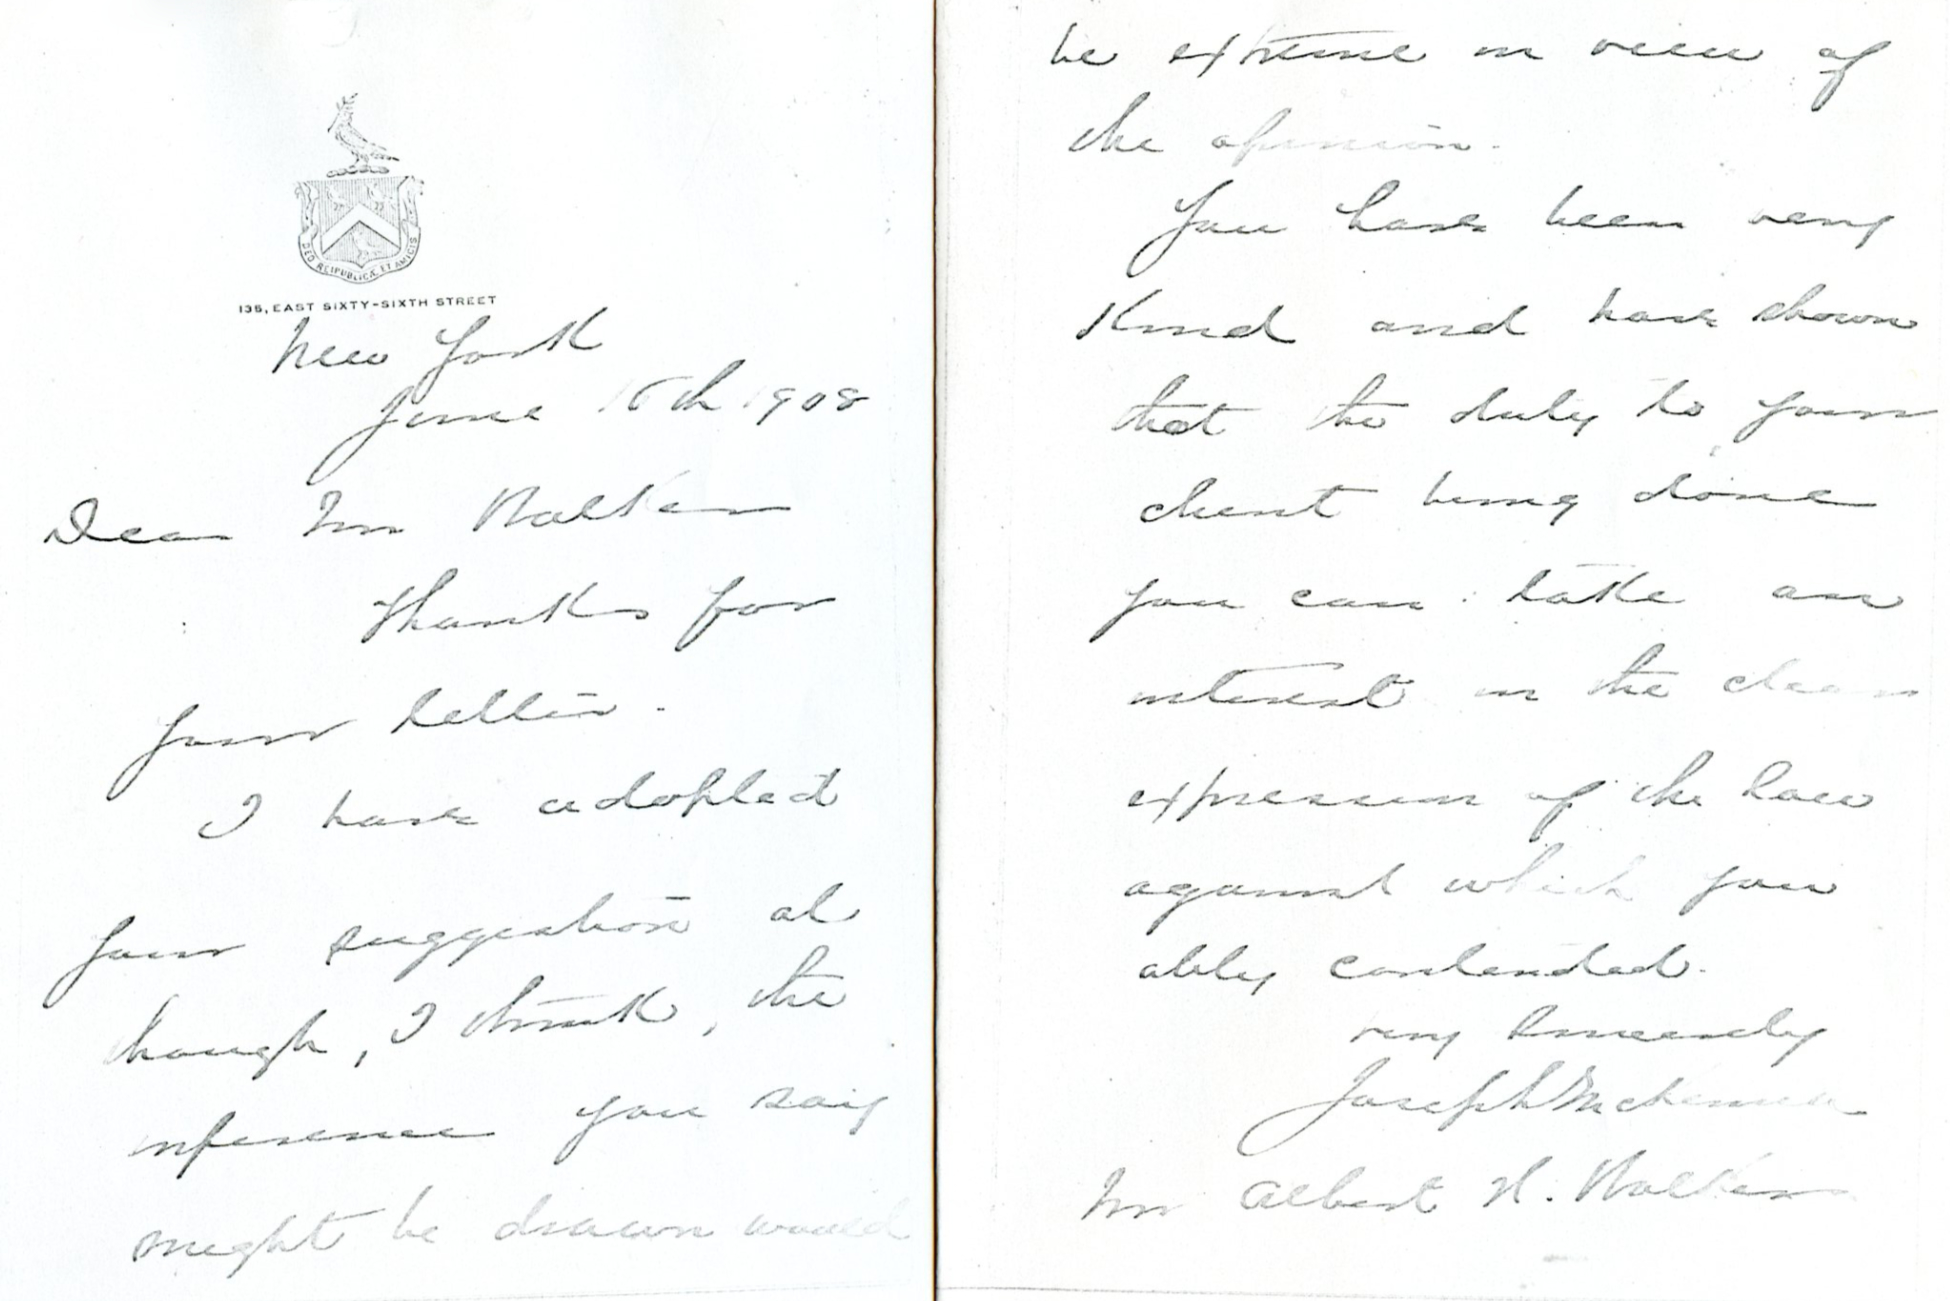 DEO REIPUBLICÆ ET AMICIS
135, EAST SIXTY-SIXTH STREET
New York
June 15th 1908
Dear Mr Walker
Thanks for
your letter.
I have adopted
your suggestion al
though, I think, the
inference you say
might be drawn would
be extreme in view of
the opinion.
You have been very
kind and have shown
that the duty to your
client being done
you can take an
interest in the clear
expression of the law
against which you
ably contended.
Very Sincerely
Joseph McKenna
Mr Albert H. Walker